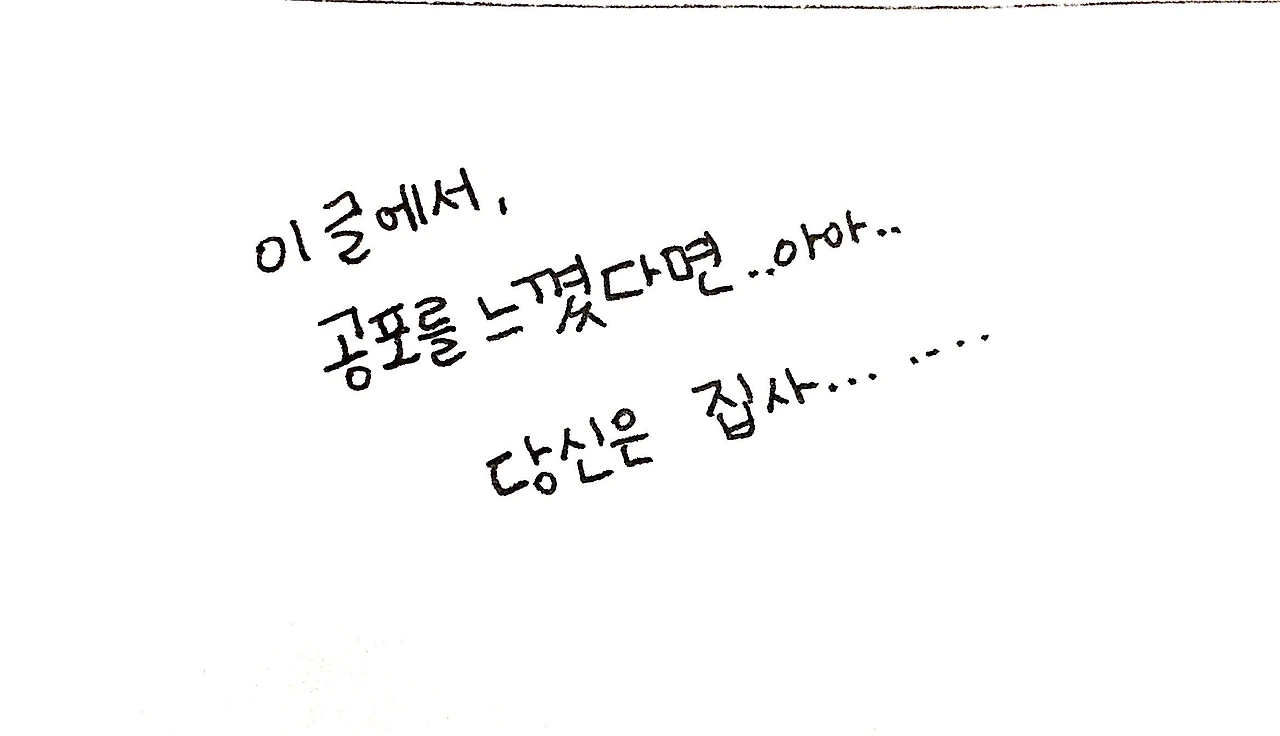 이 글에서,
공포를 느꼈다면..아아..
당신은 집사... ....